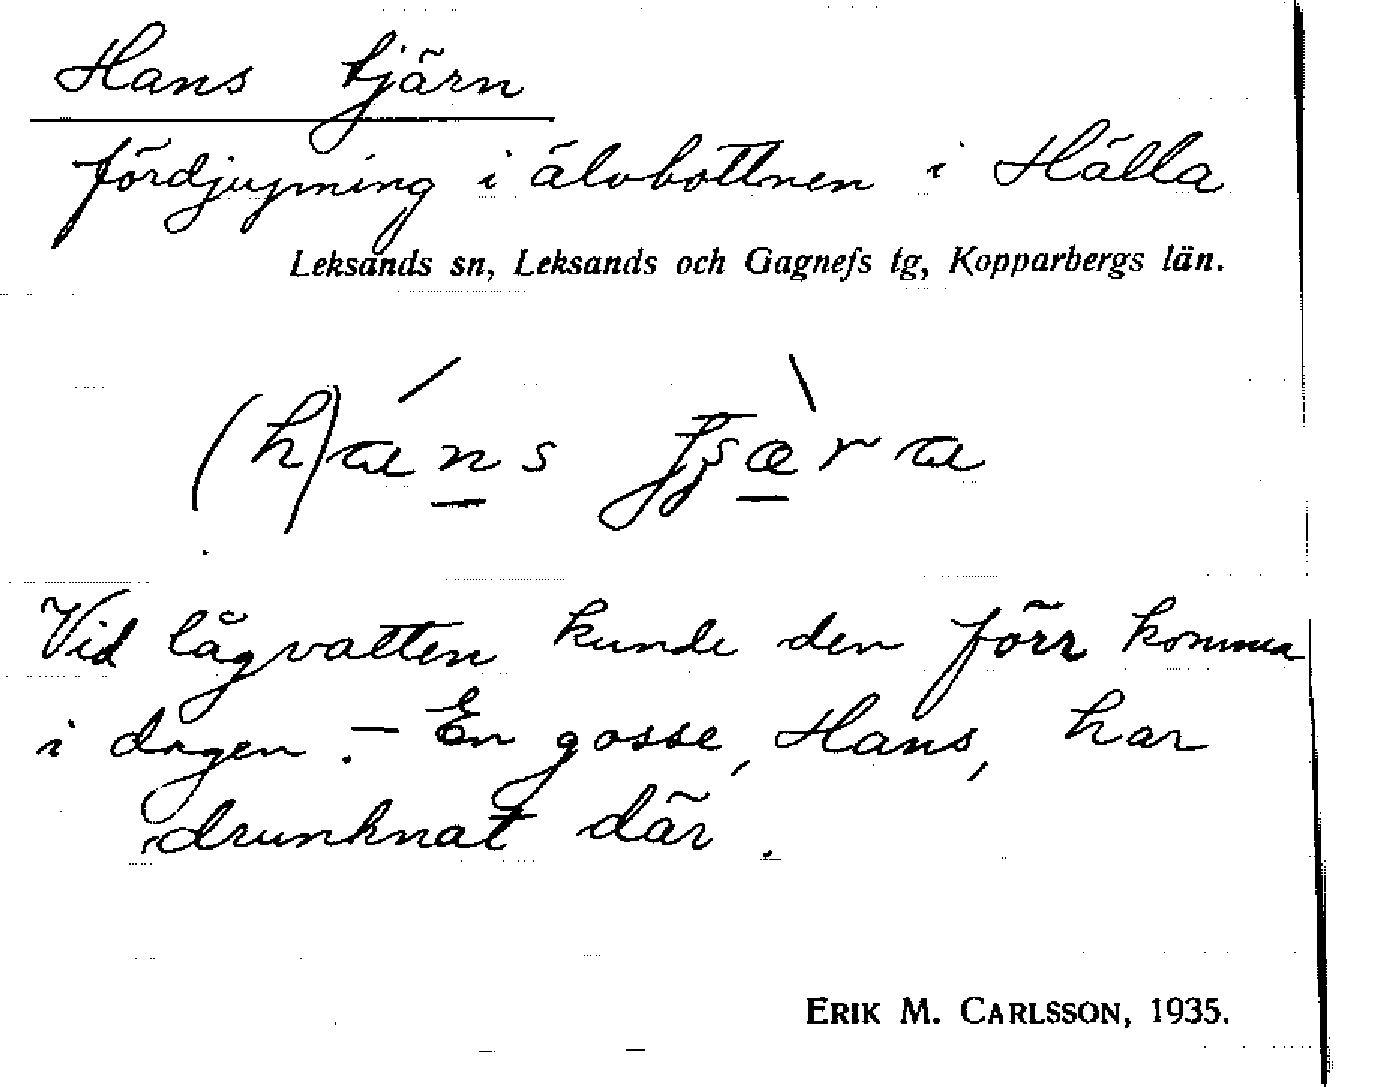 Hans tjärn
fördjupning i älvbottnen i Hälla
Leksands sn, Leksands och Gagnefs tg, Kopparbergs län.
(h)ans tjsæra
Vid lågvatten kunde den förr komma
i dagen. – En gosse, Hans, har
drunknat där.
ERIK M. CARLSSON, 1935.